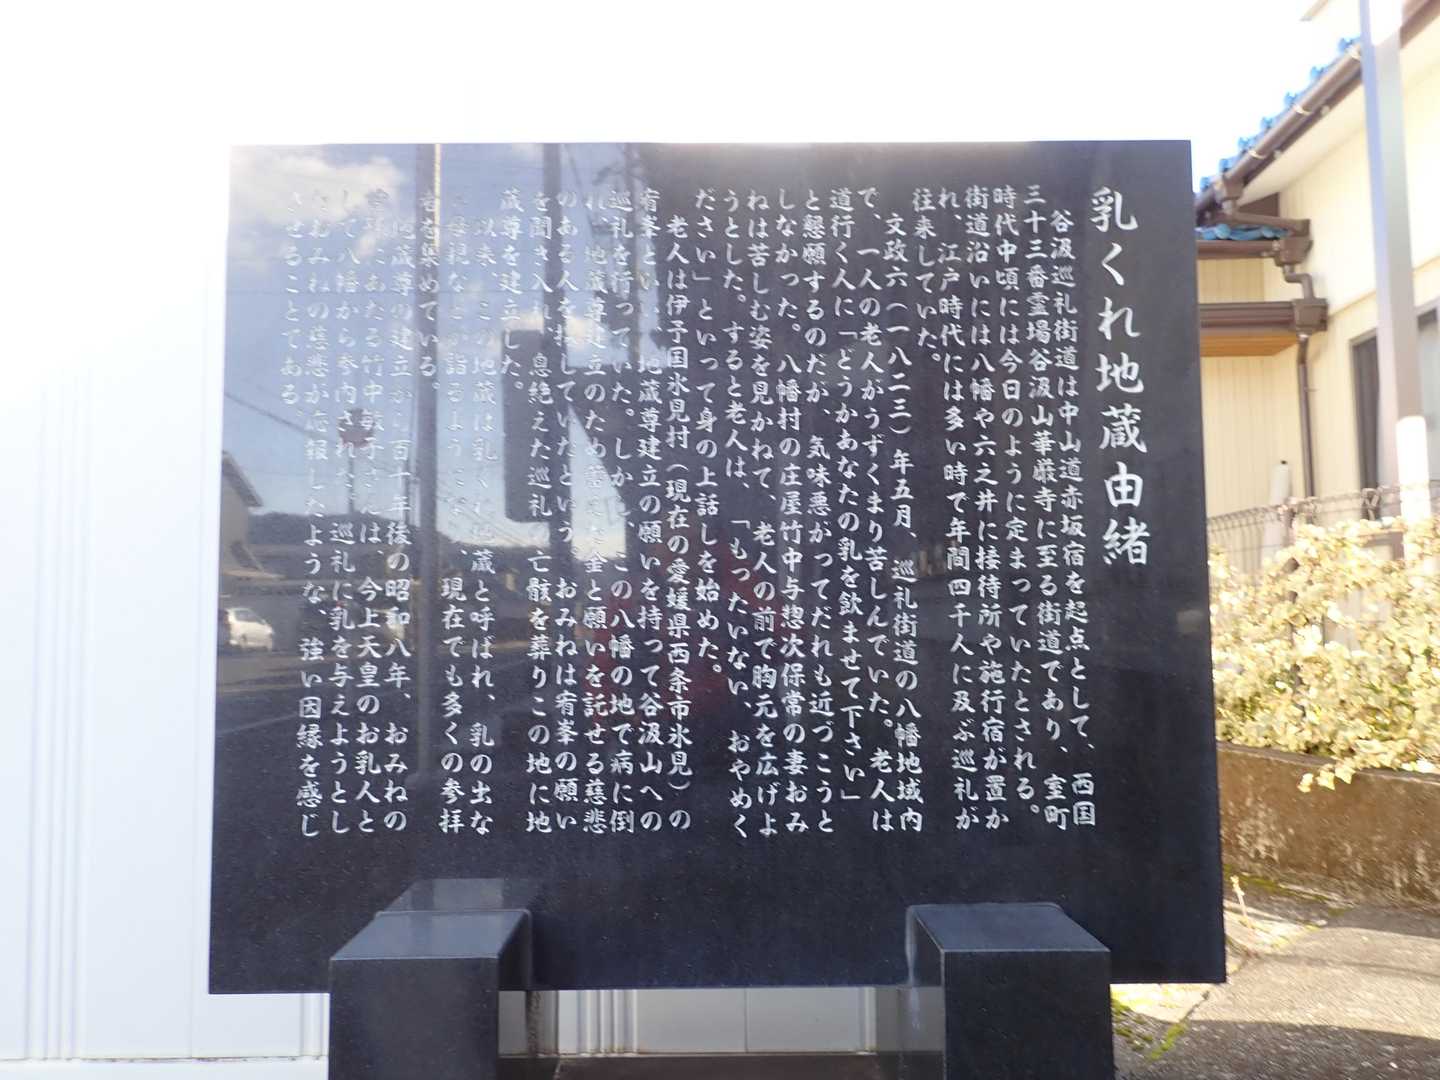 乳くれ地蔵由緒
谷汲巡礼街道は中山道赤坂宿を起点として、西国
三十三番霊場谷汲山華厳寺に至る街道であり、室町
時代中頃には今日のように定まっていたとされる。
街道沿いには八幡や六之井に接待所や施行宿が置か
れ、江戸時代には多い時で年間四千人に及ぶ巡礼が
往来していた。
文政六（一八二三）年五月、巡礼街道の八幡地域内
で、一人の老人がうずくまり苦しんでいた。老人は
道行く人に「どうかあなたの乳を飲ませて下さい」
と懇願するのだが、気味悪がってだれも近づこうと
しなかった。八幡村の庄屋竹中与惣次保常の妻おみ
ねは苦しむ姿を見かねて、老人の前で胸元を広げよ
うとした。すると老人は、「もったいない、おやめく
ださい」といって身の上話しを始めた。
老人は伊予国氷見村（現在の愛媛県西条市氷見）の
宥峯といい、地蔵尊建立の願いを持って谷汲山への
巡礼を行っていた。しかし、この八幡の地で病に倒
れ、地蔵尊建立のため蓄えた金と願いを託せる慈悲
のある人を探していたという。おみねは宥峯の願い
を聞き入れ、息絶えた巡礼の亡骸を葬りこの地に地
蔵尊を建立した。
以来、この地蔵は乳くれ地蔵と呼ばれ、乳の出な
い母親などが詣るようになり、現在でも多くの参拝
者を集めている。
地蔵尊の建立から百十年後の昭和八年、おみねの
にあたる竹中敏子さんは、今上天皇のお乳人と
して八幡から参内された。巡礼に乳を与えようとし
たおみねの慈悲が応報したような、強い因縁を感じ
させることである。